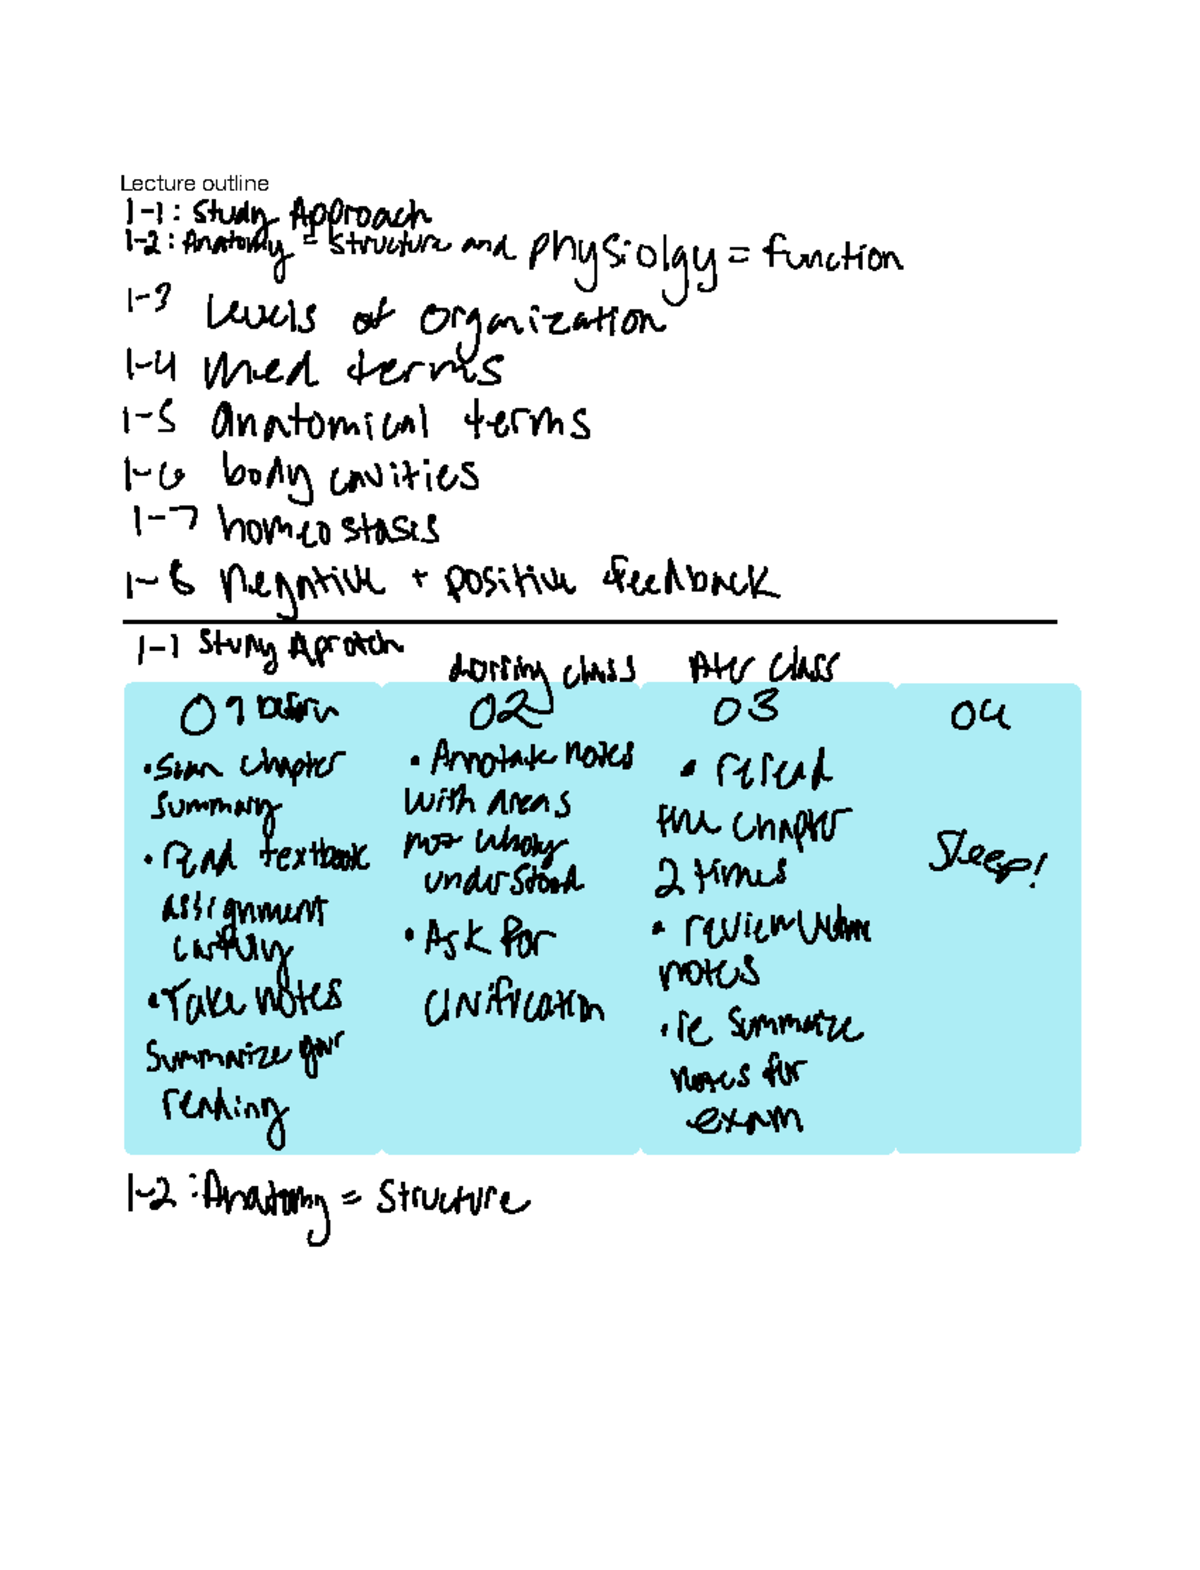 Lecture outline
1-1: Study Approach
1-2: Anatomy = Structure and physiolgy = function
1-3 Levels of organization
1-4 med terms
1-5 anatomical terms
1-6 body cavities
1-7 homeostasis
1-8 negative + positive feedback
1-1 Study Aproach
during class
After class
01 before
• Scan chapter
summary
• read textbook
assignment
carfully
• Take notes
Summarize your
reading
02
• Annotate notes
with areas
not wholey
understood
• Ask for
clarification
03
• reread
the chapter
2 times
• review
notes
• re summarize
notes for
exam
04
Sleep!
1-2: Anatomy = Structure